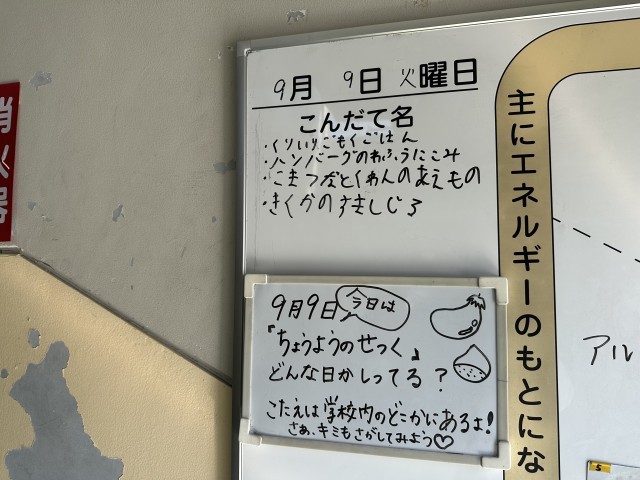 消火器
9月 9日 火曜日
こんだて名
・くりいりごもくごはん
・ハンバーグのわふうにこみ
・こまつなとくわんのあえもの
・きくかのすましじる
主にエネルギーのもとにな
9月9日 今日は
『ちょうようのせっく』
どんな日かしってる？
こたえは学校内のどこかにあるよ!
さあ、キミもさがしてみよう♡
アル
5